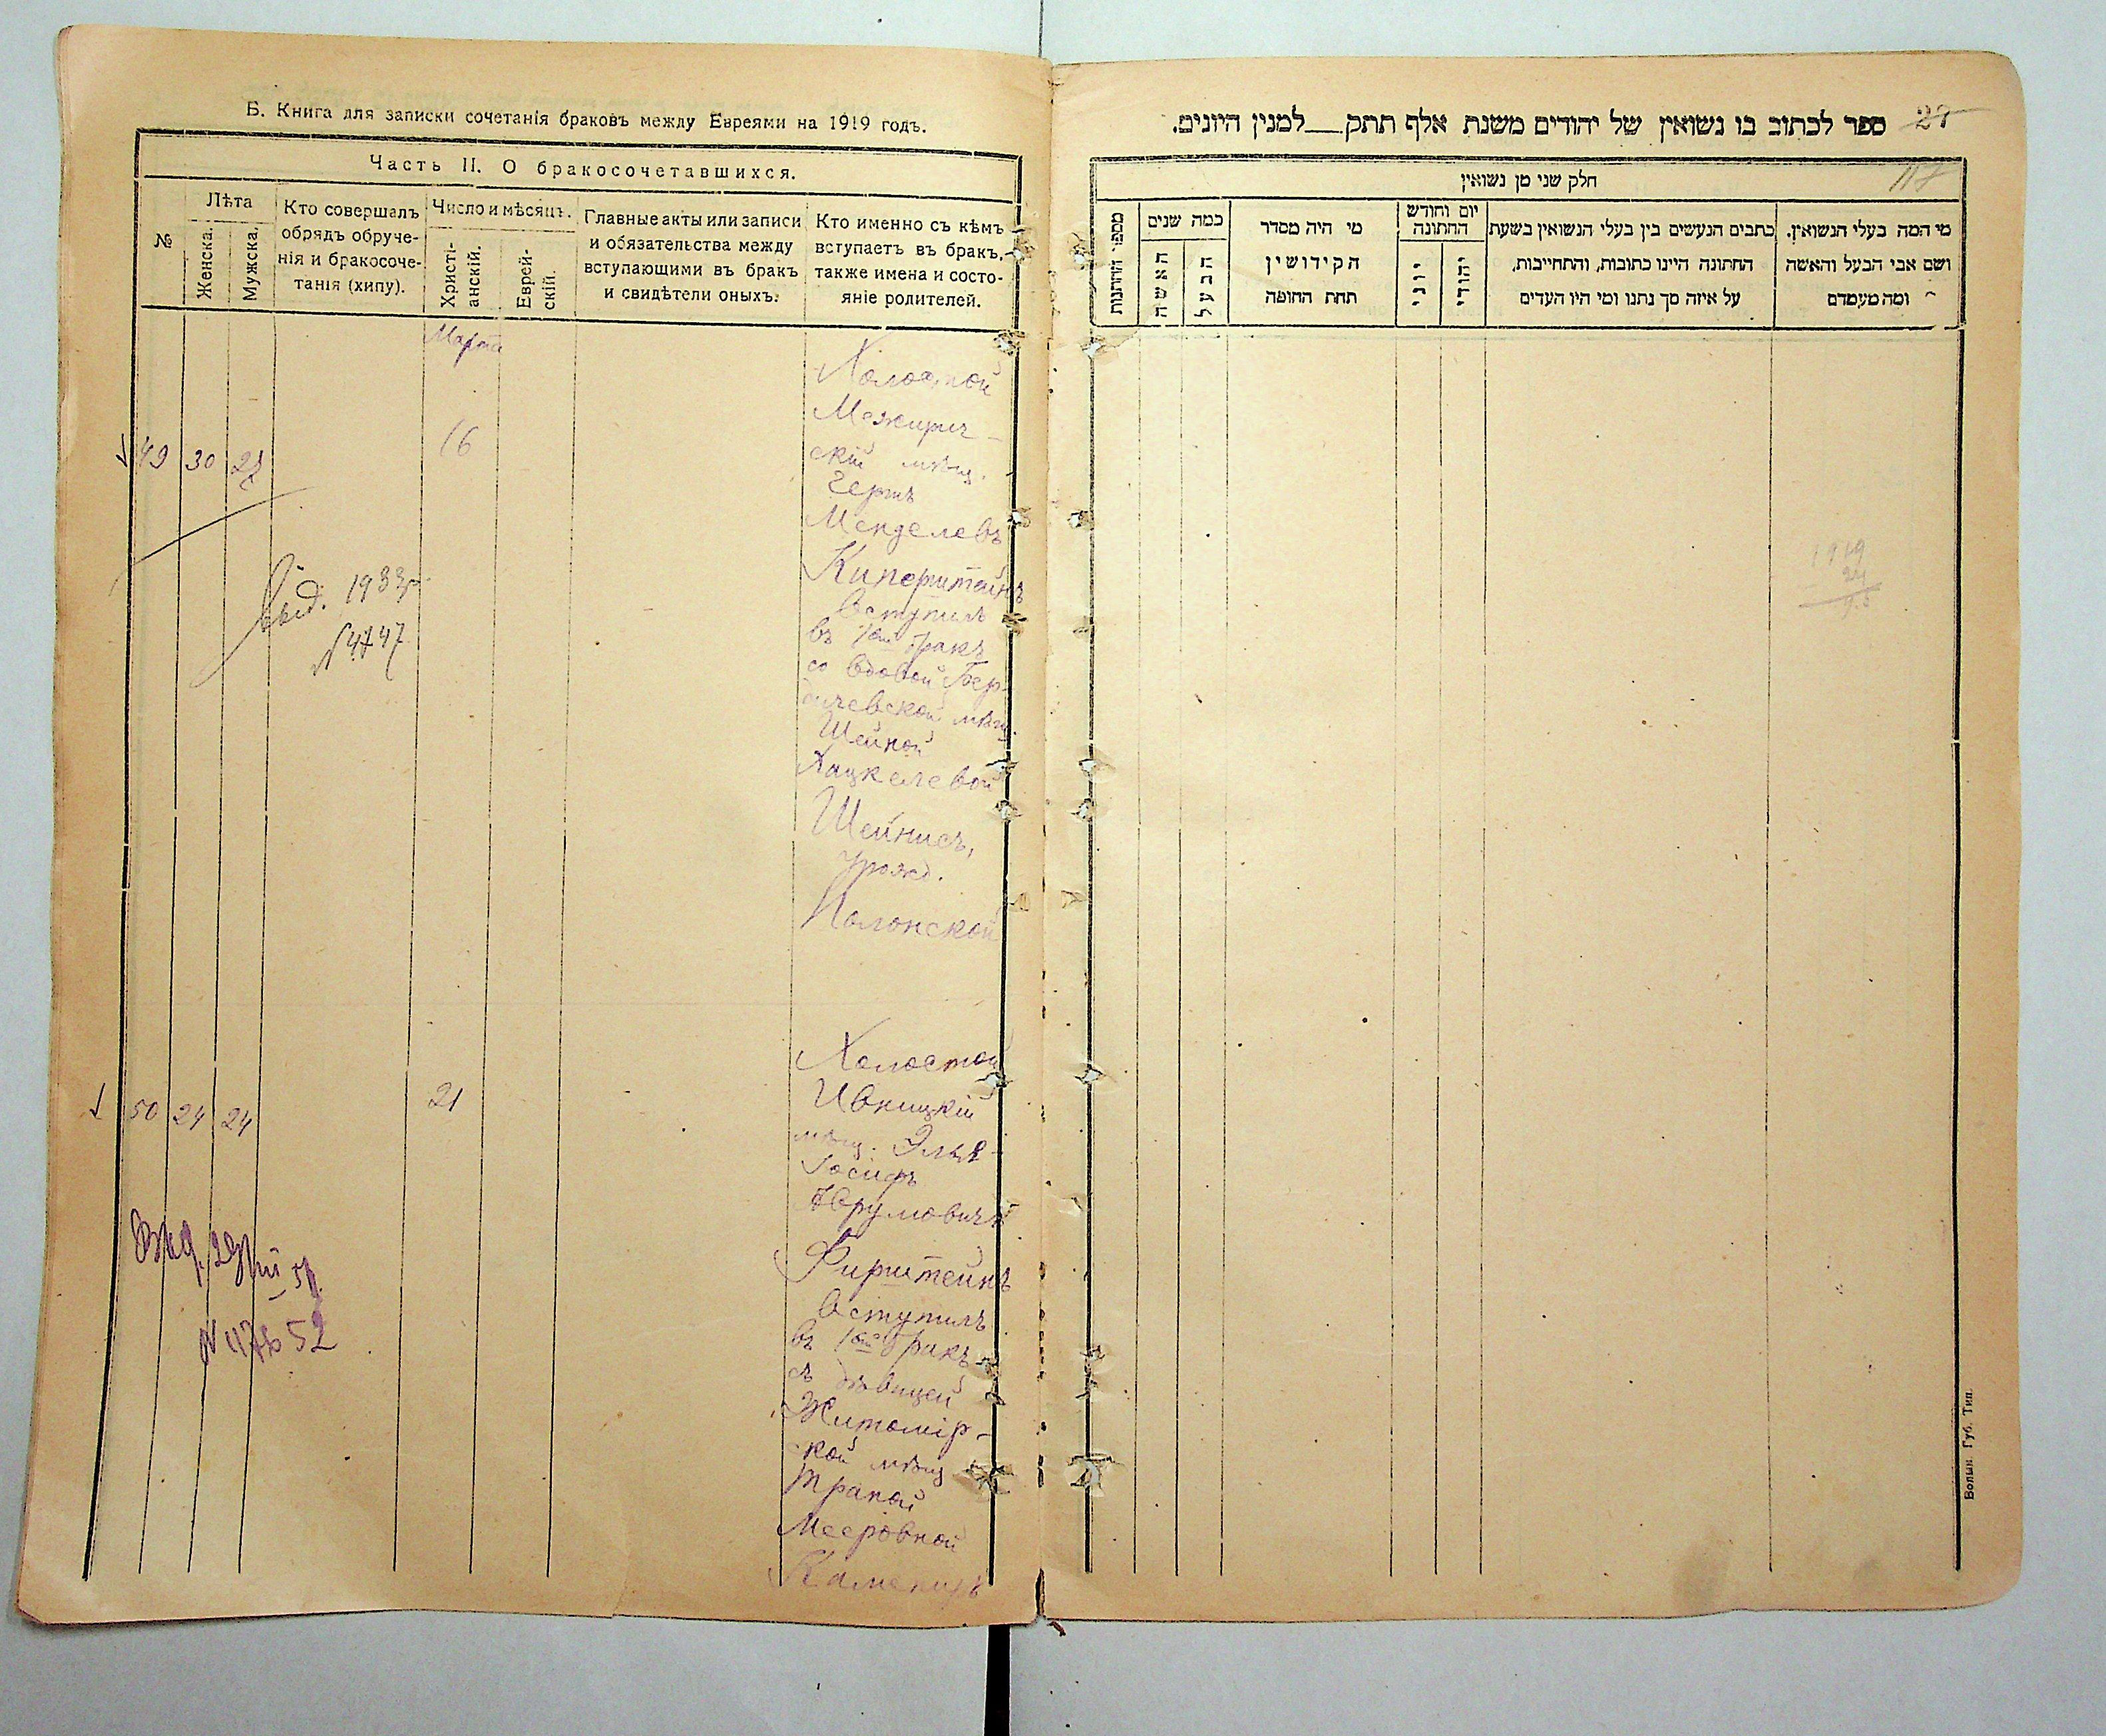 Б. Книга для записки сочетанія браковъ между Евреями на 1919 годъ.
Часть II. О бракосочетавшихся.
№
Лѣта
Женска.
Мужска.
Кто совершалъ
обрядъ обруче-
нія и бракосоче-
танія (хипу).
Число и мѣсяцъ.
Христі-
анскій.
Еврей-
скій.
Главные акты или записи
и обязательства между
вступающими въ бракъ
и свидѣтели оныхъ.
Кто именно съ кѣмъ
вступаетъ въ бракъ,
также имена и состо-
яніе родителей.
Марта
49 30 27
16
Холостой
Межирич-
скій мѣщ.
Гершъ
Менделевъ
Киперштейнъ
вступилъ
въ 1ый бракъ
со вдовой Бер-
дичевской мѣщ.
Шейной
Хацкелевой
Шейнисъ,
урожд.
Полонской
Выд. 1933 г.
N 4747
50 24 24
21
Холостой
Ивницкій
мѣщ. Элья-
Іосифъ
Аврумовичъ
Фирштейнъ
вступилъ
въ 1ый бракъ
съ дѣвицей
Житомір-
кой мѣщ
Трапой
Мееровной
Камениръ
52
27
117
ספר לכתוב בו נשואין של יהודים משנת אלף תתק___למנין היונים.
חלק שני מן נשואין
מספר החתונות
כמה שנים
האשה
הבעל
מי היה מסדר
הקידושין
תחת החופה
יום וחודש
החתונה
יוני
יהודי
כתבים הנעשים בין בעלי הנשואין בשעת
החתונה היינו כתובות, והתחייבות,
על איזה סך נתנו ומי היו העדים
מי המה בעלי הנשואין.
ושם אבי הבעל והאשה
ומה מעמדם
1919
24
95
Волын. Губ. Тип.